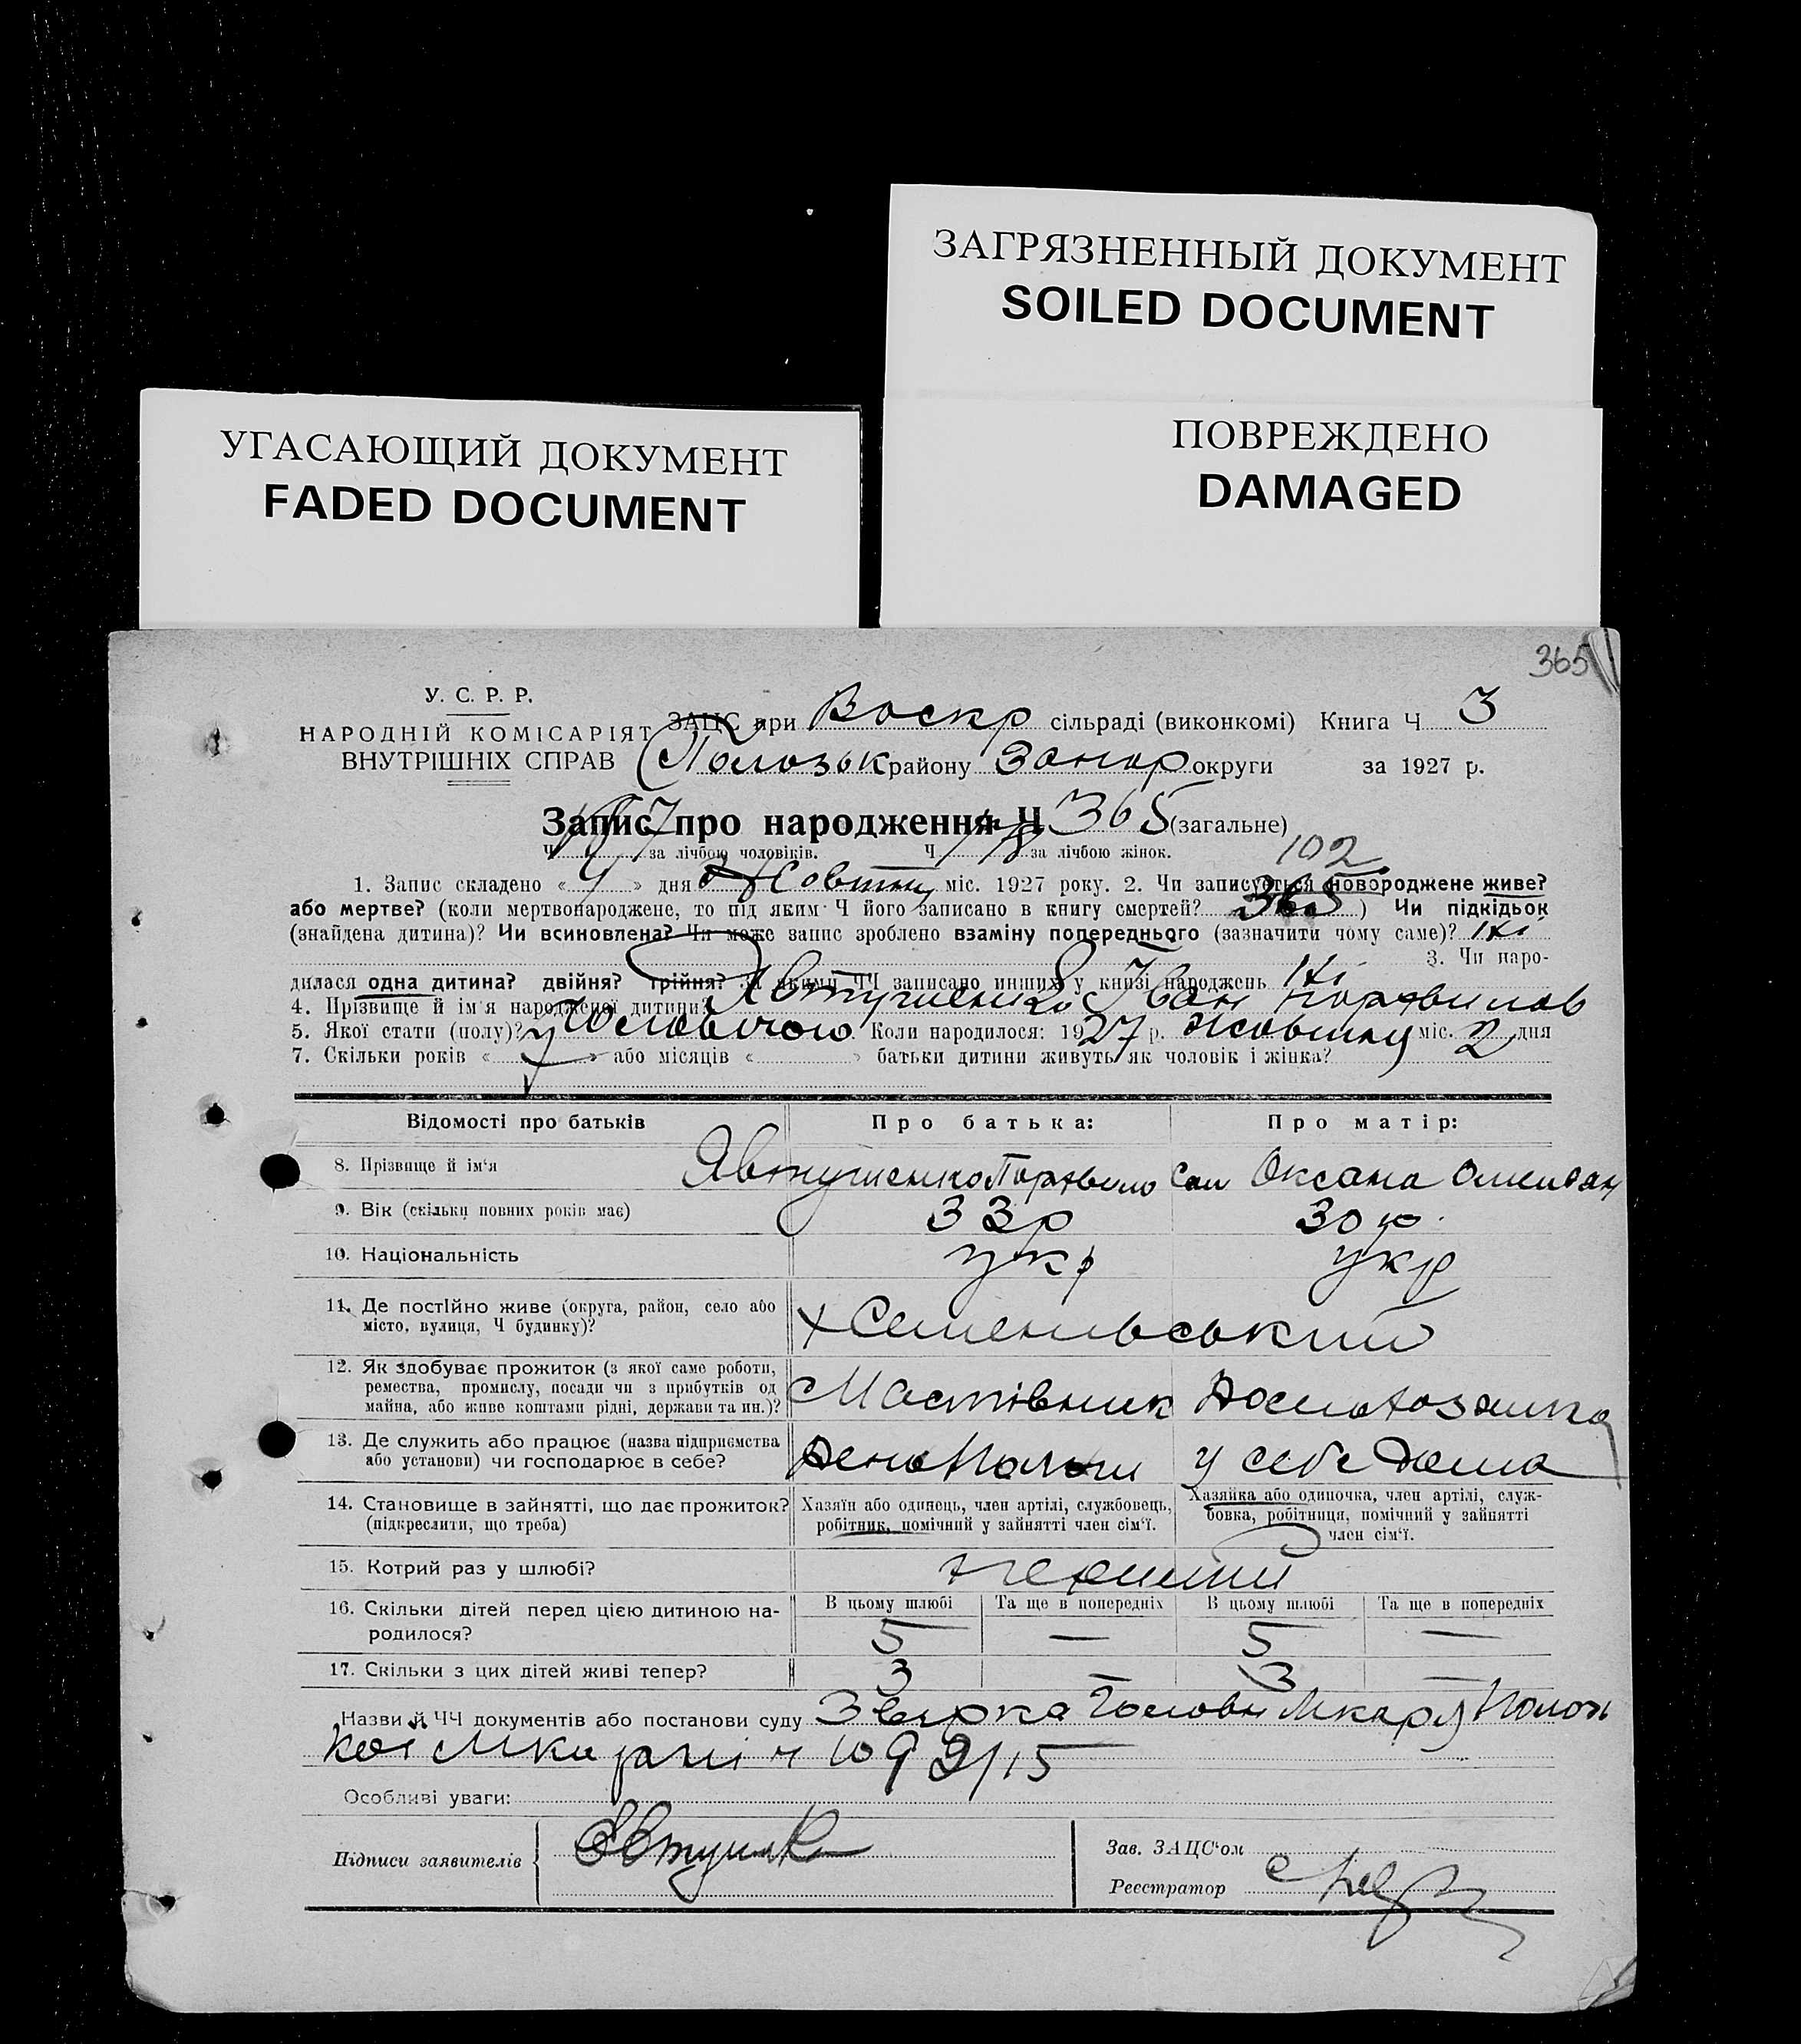 ЗАГРЯЗНЕННЫЙ ДОКУМЕНТ
SOILED DOCUMENT
УГАСАЮЩИЙ ДОКУМЕНТ
FADED DOCUMENT
ПОВРЕЖДЕНО
DAMAGED
365
У. С. Р. Р.
НАРОДНІЙ КОМІСАРІЯТ
ВНУТРІШНІХ СПРАВ
ЗАЦС при Воскр сільраді (виконкомі) Книга Ч 3
Пологьк району Запор округи за 1927 р.
Запис про народження Ч 365 (загальне)
Ч 187 за лічбою чоловіків. Ч 178 за лічбою жінок.
102
1. Запис складено « 4 » дня Жовтня міс. 1927 року. 2. Чи записується новороджене живе?
або мертве? (коли мертвонароджене, то під яким Ч його записано в книгу смертей? 365 ) Чи підкідьок
(знайдена дитина)? Чи всиновлена? Чи може запис зроблено взаміну попереднього (зазначити чому саме)? Ні
3. Чи наро-
дилася одна дитина? двійня? трійня? За якими ЧЧ записано инших у книзі народжень Ні
4. Прізвище й ім'я народженої дитини? Явтушенко Іван Парфилов
5. Якої стати (полу)? Чоловічою Коли народилося: 1927 р. жовтня міс. 2 дня
7. Скільки років « » або місяців « » батьки дитини живуть як чоловік і жінка?
Відомості про батьків Про батька: Про матір:
8. Прізвище й ім'я Явтушенко Парфило Сам Оксана
9. Вік (скільки повних років має) 33р 30 р.
10. Національність укр укр
11. Де постійно живе (округа, район, село або
місто, вулиця, Ч будинку)?
х Семенівський
12. Як здобуває прожиток (з якої саме роботи,
ремества, промислу, посади чи з прибутків од
майна, або живе коштами рідні, держави та ин.)?
Мастівник Домохозяйка
13. Де служить або працює (назва підприємства
або установи) чи господарює в себе?
Депо Пологи у себе дома
14. Становище в зайнятті, що дає прожиток?
(підкреслити, що треба)
Хазяїн або одинець, член артілі, службовець,
робітник, помічний у зайнятті член сім'ї.
Хазяйка або одиночка, член артілі, служ-
бовка, робітниця, помічний у зайнятті
член сім'ї.
15. Котрий раз у шлюбі? перший
16. Скільки дітей перед цією дитиною на-
родилося?
В цьому шлюбі Та ще в попередніх В цьому шлюбі Та ще в попередніх
5 — 5 —
17. Скільки з цих дітей живі тепер? 3 — 3 —
Назви й ЧЧ документів або постанови суду Лікар Полог
кої Лікарні ч 1092/15
Особливі уваги:
Підписи заявителів
Зав. ЗАЦС'ом
Реєстратор